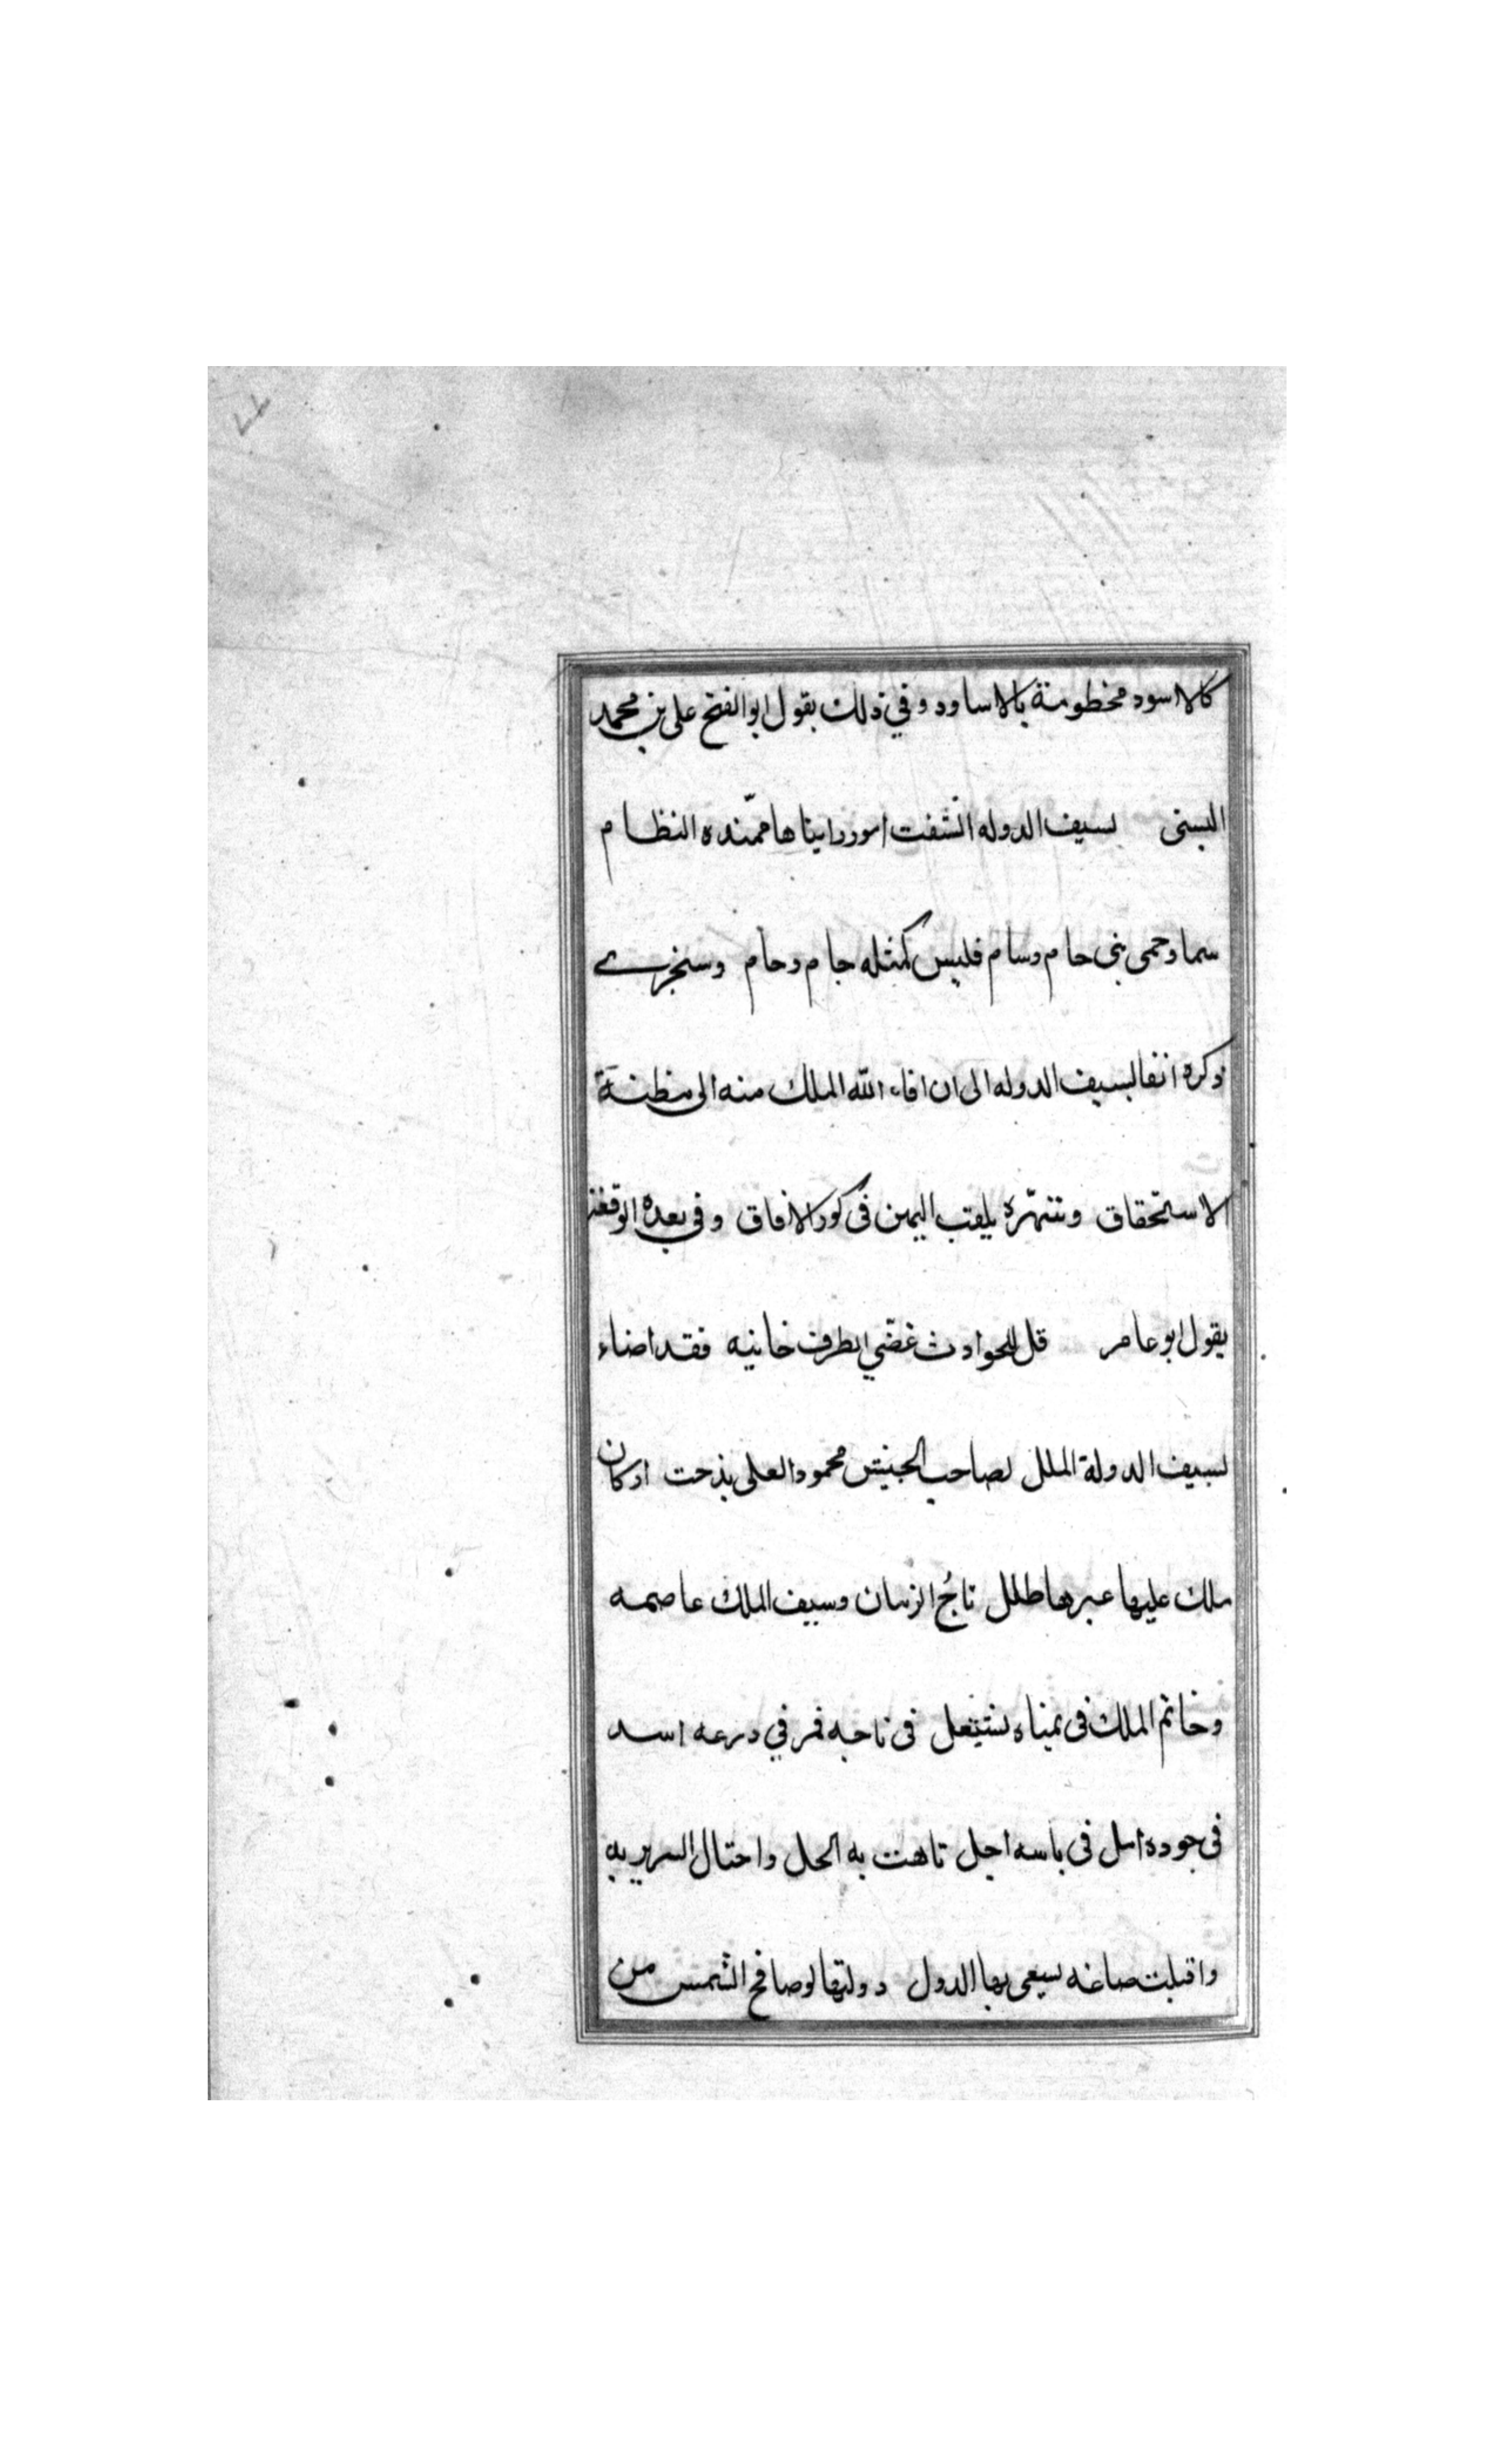 كالاسود مخطومة بالاساود وفي ذلك يقول ابو الفتح على بن محمد
البستى لسيف الدوله اتسقت امور راينها ممنده النظام
سما وحمى بنى حام وسام فليس كمثله جام وحام وسنجرى
ذكره انفا لسيف الدوله الى ان افاء الله الملك منه الى مظنة
الاستحقاق وشهره بلقب اليمين فى كور الافاق وفي بعده الوقعة
يقول ابو عامر قل للحوادث غضي لطرف خانيه فقد اضاء
لسيف الدولة الملل لصاحب الجيش محمود العلى بذحت اركان
ملك عليها عبرها طلل تاج الزمان وسيف الملك عاصمه
وخاتم الملك فى يمناه يشتعل فى تاجه قمر في درعه اسد
فى جوده امل فى باسه اجل تاهت به الحل واختال السرير به
واقبلت صاغه يسعى بها الدول دولتها لو صافح الشمس من